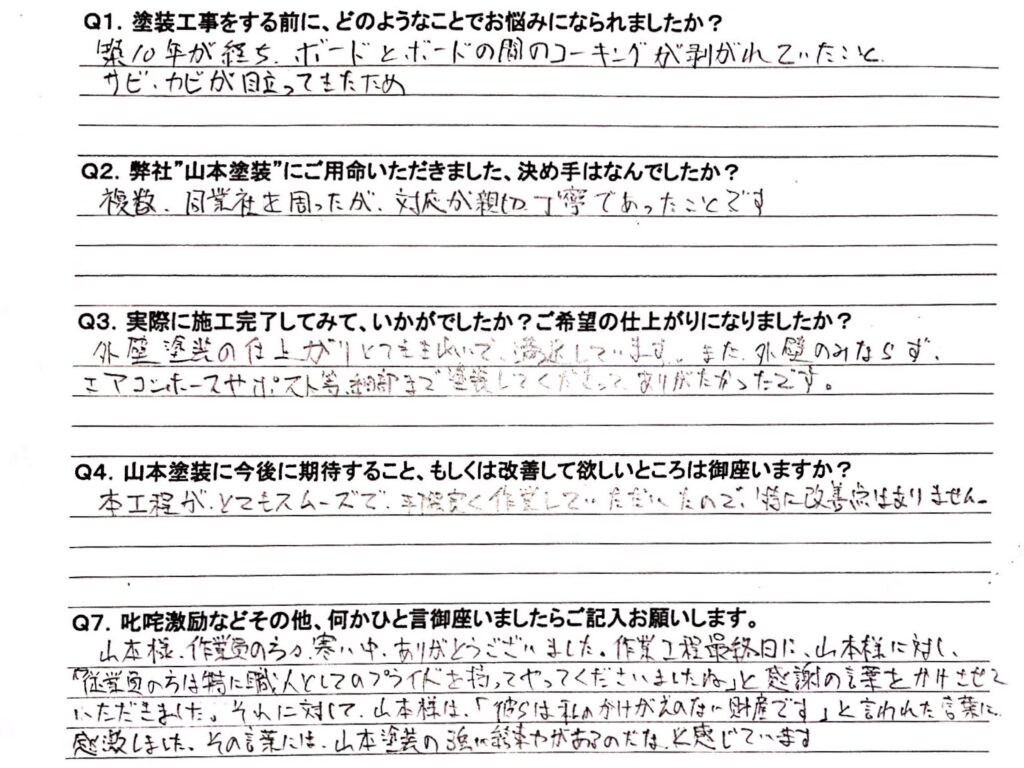 Q1. 塗装工事をする前に、どのようなことでお悩みになられましたか？
築10年が経ち、ボードとボードの間のコーキングが剥がれていたこと
サビ・カビが目立ってきたため
Q2. 弊社”山本塗装”にご用命いただきました、決め手はなんでしたか？
複数、同業社を周ったが、対応が親切、丁寧であったことです
Q3. 実際に施工完了してみて、いかがでしたか？ご希望の仕上がりになりましたか？
外壁塗装の仕上がりとてもきれいで、満足しています。また、外壁のみならず、
エアコンホースやポスト等、細部まで塗装してくださって、ありがたかったです。
Q4. 山本塗装に今後に期待すること、もしくは改善して欲しいところは御座いますか？
本工程が、とてもスムーズで、手際良く作業していただいたので、特に改善点はありません。
Q7. 叱咤激励などその他、何かひと言御座いましたらご記入お願いします。
山本様、作業員の方々、寒い中、ありがとうございました。作業工程最終日に、山本様に対し、
「従業員の方は特に職人としてのプライドを持ってやってくださいましたね」と感謝の言葉をかけさせて
いただきました。それに対して、山本様は、「彼らは私のかけがえのない財産です」と言われた言葉に
感激しました。その言葉には、山本塗装の強い絆やがあるのだな、と感じています